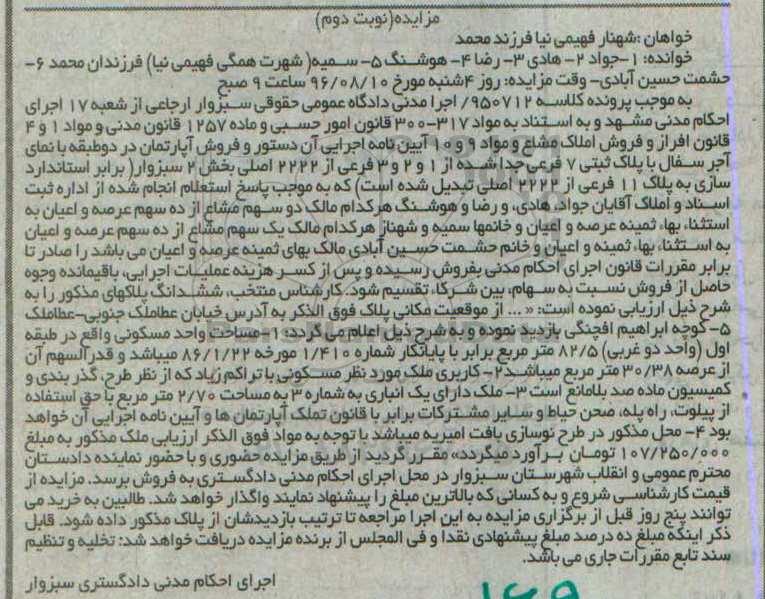 مزایده(نوبت دوم)
خواهان :شهنار فهیمی نیا فرزند محمد
خوانده: ۱-جواد ۲- هادی ۳- رضا ۴- هوشنگ ۵- سمیه( شهرت همگی فهیمی نیا) فرزندان محمد ۶-
حشمت حسین آبادی- وقت مزایده: روز ۴شنبه مورخ ۹۶/۰۸/۱۰ ساعت ۹ صبح
به موجب پرونده کلاسه ۹۵۰۷۱۲/ اجرا مدنی دادگاه عمومی حقوقی سبزوار ارجاعی از شعبه ۱۷ اجرای
احکام مدنی مشهد و به استناد به مواد ۳۱۷-۳۰۰ قانون امور حسبی و ماده ۱۲۵۷ قانون مدنی و مواد ۱ و ۴
قانون افراز و فروش املاک مشاع و مواد ۹ و ۱۰ آیین نامه اجرایی آن دستور و فروش آپارتمان در دوطبقه با نمای
آجر سفال با پلاک ثبتی ۷ فرعی جدا شده از ۱ و ۲ و ۳ فرعی از ۲۲۲۲ اصلی بخش ۲ سبزوار( برابر استاندارد
سازی به پلاک ۱۱ فرعی از ۲۲۲۲ اصلی تبدیل شده است) که به موجب پاسخ استعلام انجام شده از اداره ثبت
اسناد و املاک آقایان جواد، هادی، و رضا و هوشنگ هرکدام مالک دو سهم مشاع از ده سهم عرصه و اعیان به
استثنا، بها، ثمینه عرصه و اعیان و خانمها سمیه و شهناز هرکدام مالک یک سهم مشاع از ده سهم عرصه و اعیان
به استثنا، بها، ثمینه و اعیان و خانم حشمت حسین آبادی مالک بهای ثمینه عرصه و اعیان می باشد را صادر تا
برابر مقررات قانون اجرای احکام مدنی بفروش رسیده و پس از کسر هزینه عملیات اجرایی، باقیمانده وجوه
حاصل از فروش نسبت به سهام، بین شرکا، تقسیم شود. کارشناس منتخب، ششدانگ پلاکهای مذکور را به
شرح ذیل ارزیابی نموده است: « ... از موقعیت مکانی پلاک فوق الذکر به آدرس خیابان عطاملک جنوبی-عطاملک
۵- کوچه ابراهیم افچنگی بازدید نموده و به شرح ذیل اعلام می گردد: ۱-مساحت واحد مسکونی واقع در طبقه
اول (واحد دو غربی) ۸۲/۵ متر مربع برابر با پایانکار شماره ۱/۴۱۰ مورخه ۸۶/۱/۲۲ میباشد و قدرالسهم آن
از عرصه ۳۰/۳۸ متر مربع میباشد ۲- کاربری ملک مورد نظر مسکونی با تراکم زیاد که از نظر طرح، گذر بندی و
کمیسیون ماده صد بلامانع است ۳- ملک دارای یک انباری به شماره ۳ به مساحت ۲/۷۰ متر مربع با حق استفاده
از پیلوت، راه پله، صحن حیاط و سایر مشترکات برابر با قانون تملک آپارتمان ها و آیین نامه اجرایی آن خواهد
بود ۴- محل مذکور در طرح نوسازی بافت امیریه میباشد با توجه به مواد فوق الذکر ارزیابی ملک مذکور به مبلغ
۱۰۷/۲۵۰/۰۰۰ تومان برآورد میگردد» مقرر گردید از طریق مزایده حضوری و با حضور نماینده دادستان
محترم عمومی و انقلاب شهرستان سبزوار در محل اجرای احکام مدنی دادگستری به فروش برسد. مزایده از
قیمت کارشناسی شروع و به کسانی که بالاترین مبلغ را پیشنهاد نمایند واگذار خواهد شد. طالبین به خرید می
توانند پنج روز قبل از برگزاری مزایده به این اجرا مراجعه تا ترتیب بازدیدشان از پلاک مذکور داده شود. قابل
ذکر اینکه مبلغ ده درصد مبلغ پیشنهادی نقدا و فی المجلس از برنده مزایده دریافت خواهد شد: تخلیه و تنظیم
سند تابع مقررات جاری می باشد.
اجرای احکام مدنی دادگستری سبزوار
۱۶۹